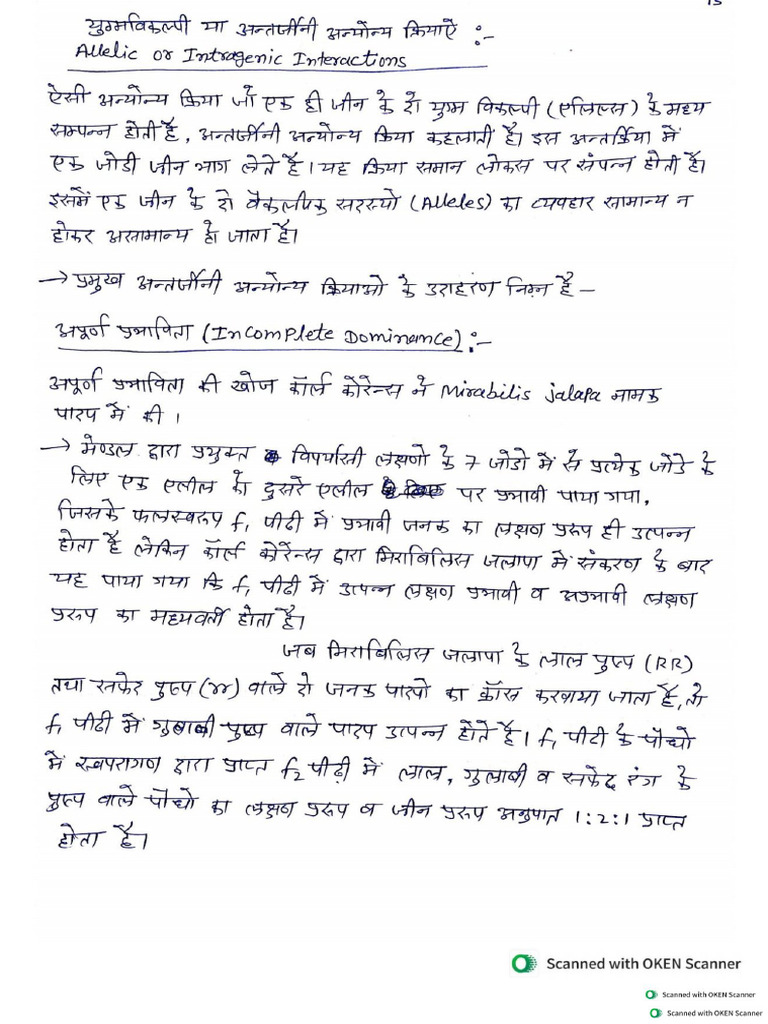 13
युग्मविकल्पी या अन्तर्जीनी अन्योन्य क्रियाऐं :-
Allelic or Intragenic Interactions
ऐसी अन्योन्य क्रिया जो एक ही जीन के दो युग्म विकल्पी (एलिल्स) के मध्य
सम्पन्न होती है, अन्तर्जीनी अन्योन्य क्रिया कहलाती है। इस अन्तर्क्रिया में
एक जोडी जीन भाग लेते है। यह क्रिया समान लोकस पर संपन्न होती है।
इसमें एक जीन के दो वैकल्पिक सदस्यो (Alleles) का व्यवहार सामान्य न
होकर असामान्य हो जाता है।
→ प्रमुख अन्तर्जीनी अन्योन्य क्रियाओ के उदाहरण निम्न है –
अपूर्ण प्रभाविता (Incomplete Dominance) :-
अपूर्ण प्रभाविता की खोज कॉर्ल कोरेन्स ने Mirabilis jalapa नामक
पादप में की ।
→ मेण्डल द्वारा प्रयुक्त विपर्यासी लक्षणो के 7 जोडो में से प्रत्येक जोडे के
लिए एक एलील का दुसरे एलील पर प्रभावी पाया गया,
जिसके फलस्वरूप f₁ पीढी में प्रभावी जनक का लक्षण प्ररूप ही उत्पन्न
होता है लेकिन कॉर्ल कोरेन्स द्वारा मिराबिलिस जलापा में संकरण के बाद
यह पाया गया कि f₁ पीढी में उत्पन्न लक्षण प्रभावी व अप्रभावी लक्षण
प्ररूप का मध्यवर्ती होता है।
जब मिराबिलिस जलापा के लाल पुष्प (RR)
तथा सफेद पुष्प (rr) वाले दो जनक पादपो का क्रॉस करवाया जाता है, तो
f₁ पीढी में गुलाबी पुष्प वाले पादप उत्पन्न होते है। f₁ पीढी के पौधो
में स्वपरागण द्वारा प्राप्त f₂ पीढ़ी में लाल, गुलाबी व सफेद रंग के
पुष्प वाले पौधो का लक्षण प्ररूप व जीन प्ररूप अनुपात 1:2:1 प्राप्त
होता है।
Scanned with OKEN Scanner
Scanned with OKEN Scanner
Scanned with OKEN Scanner